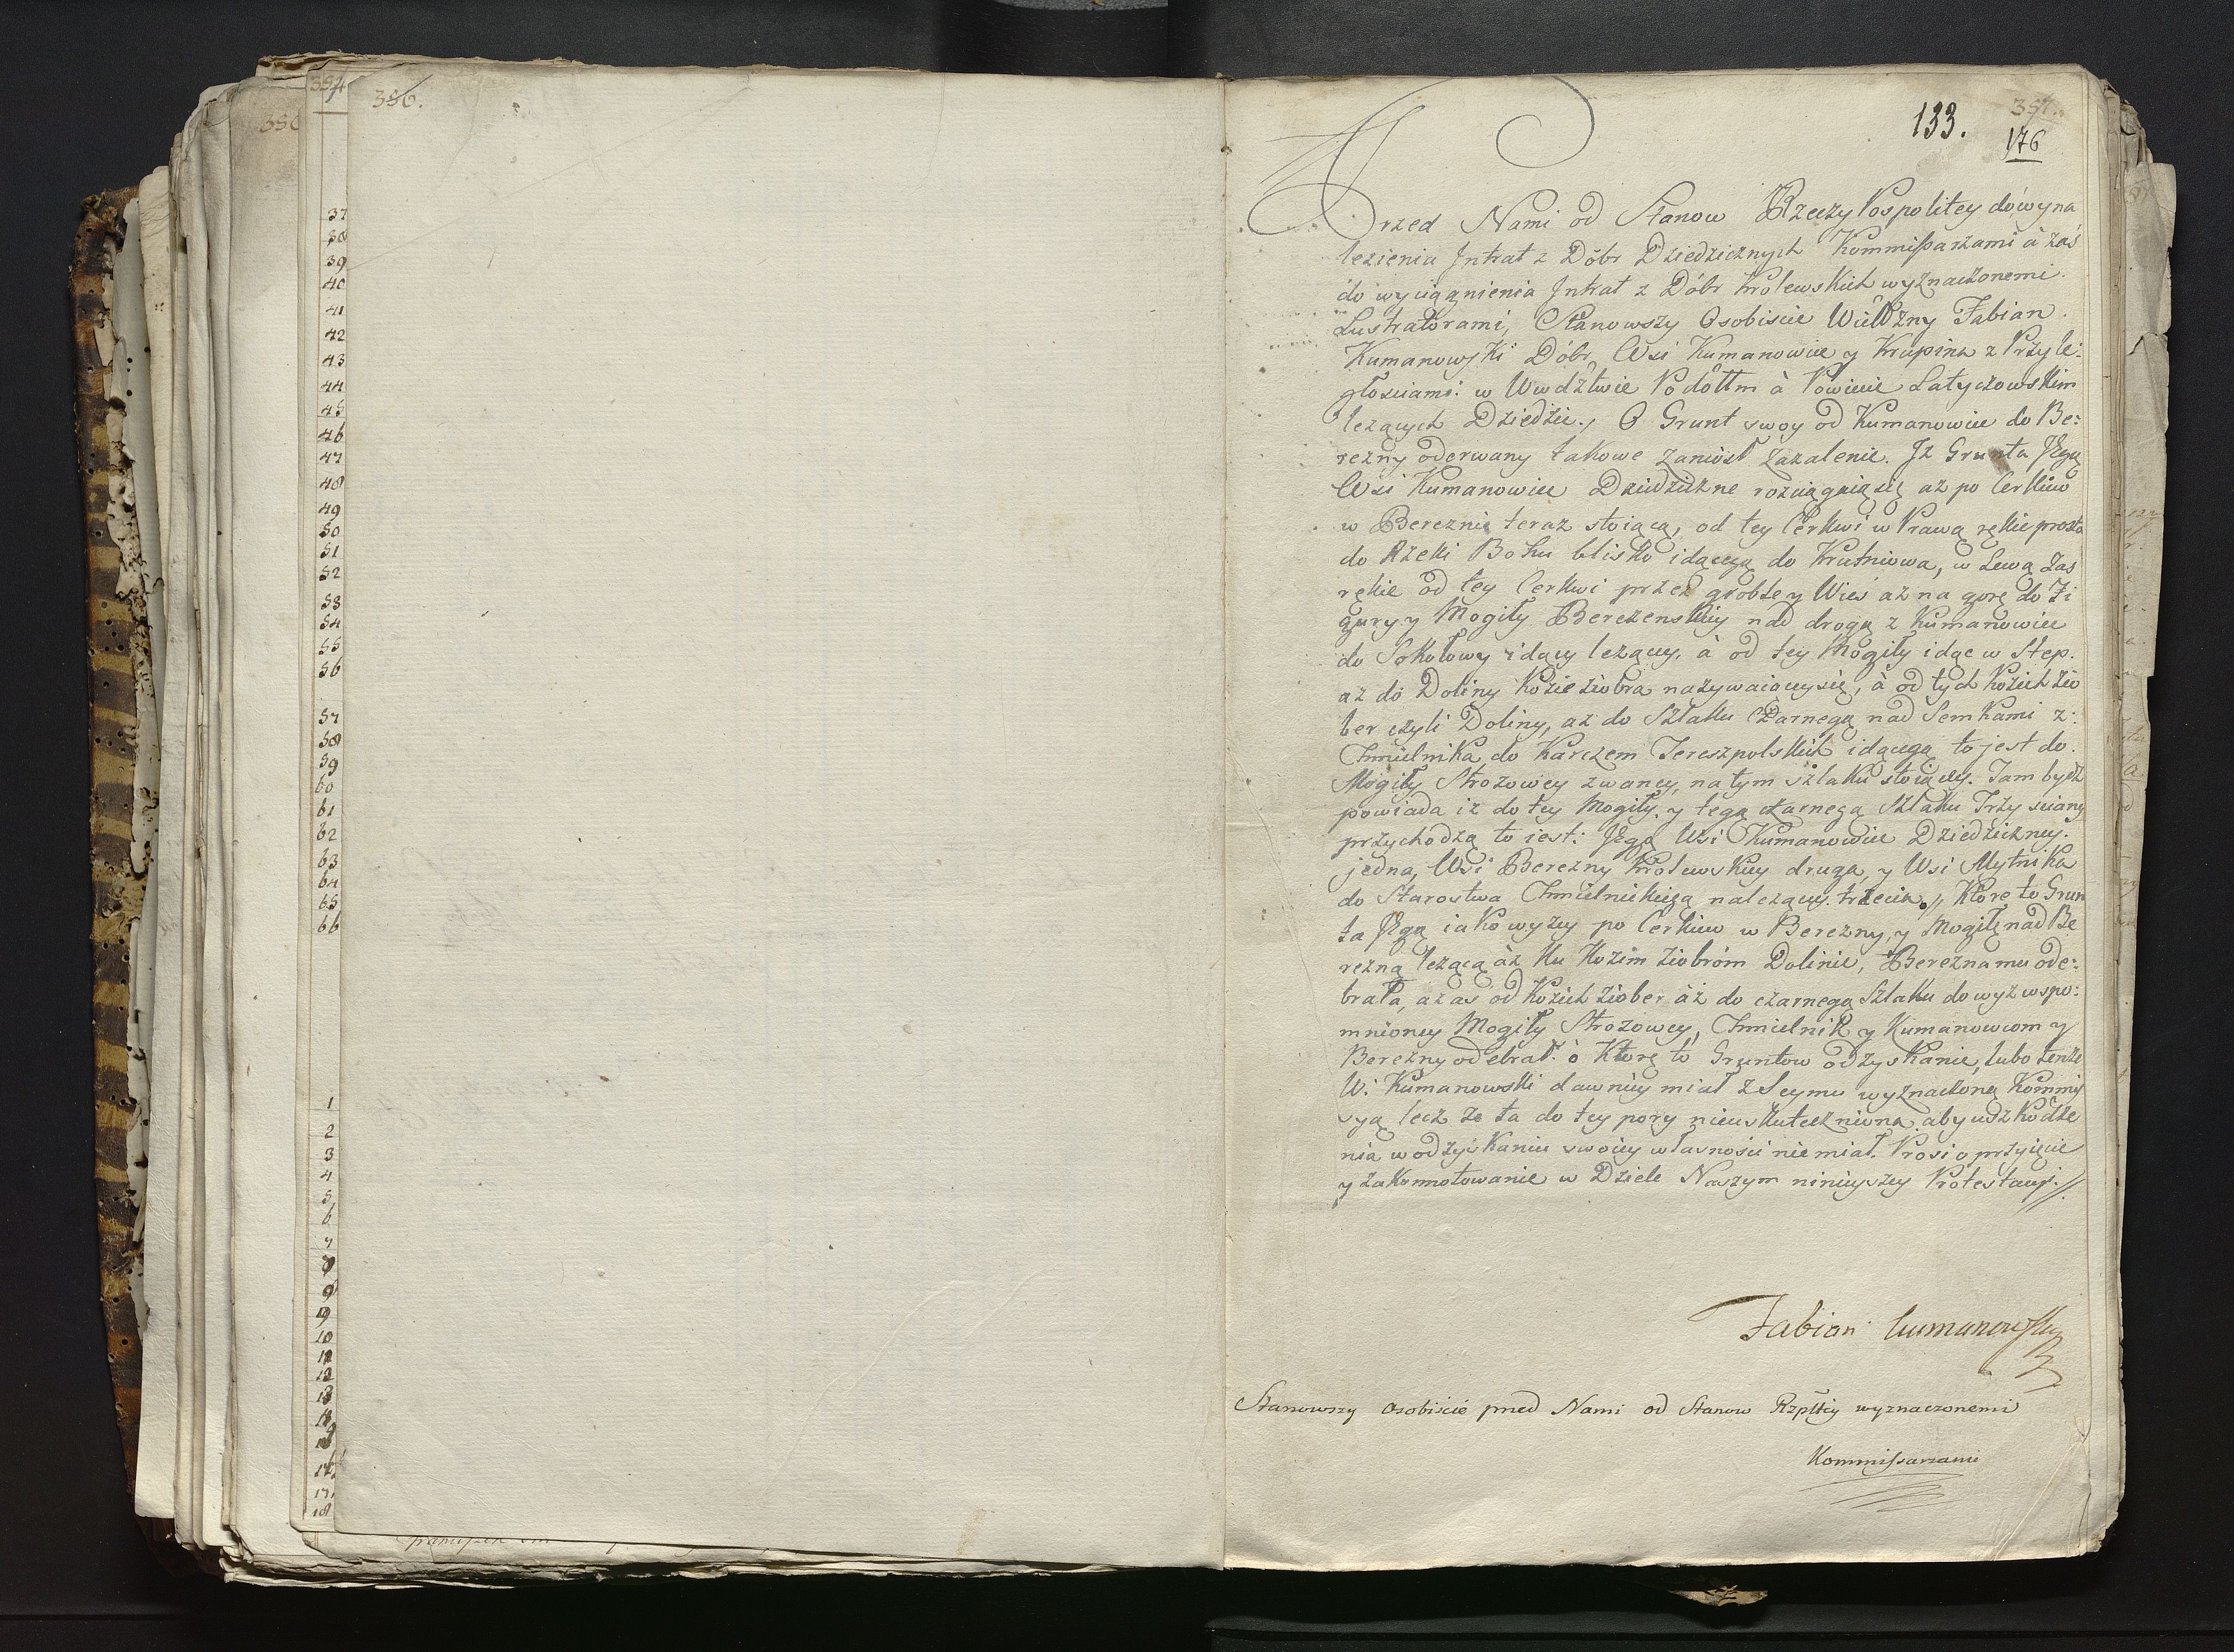 354
350
356.
37
38
39
40
41
42
43
44
45
46
47
48
49
50
51
52
53
54
55
56
57
58
59
60
61
62
63
64
65
66
1
2
3
4
5
6
7
8
9
10
11
12
13
17
18
357.
133.
176
Przed Nami od Stanow Rzeczy Pospolitey do wyna
lezienia Jntrat z Dóbr Dziedzicznych Kommissarzami à zaś
do wyciągnienia Jntrat z Dóbr Krolewskich wyznaczonemi
Lustratorami, Stanowszy Osobiscie Wielżny Fabian
Kumanowski Dóbr Wsi Kumanowiec y Krupina z Przyle:
głosciami w Wwdztwie Podolłm à Powiecie Latyczowskim
leżących Dziedzic., O Grunt swoy od Kumanowiec do Be:
rezny oderwany takowe zaniosł zazalenie. Jz Grunta Jego
Wsi Kumanowiec Dziedziczne rozciągaią się aż po Cerkiew
w Bereznie teraz stoiącą, od tey Cerkwi w Prawą rękie prosto
do Rzeki Bohu blisko idącego do Krutniowa, w Lewą zas
rękie od tey Cerkwi przez groble y Wieś aż na gorę do Fi
gury y Mogiły Berezenskiey nad drogą z Kumanowiec
do Sokołowy idący leżący, à od tey Mogiły idąc w Step.
aż do Doliny Kozie ziobra nazywaiącysię, à od tych Kozich zio
ber czyli Doliny, aż do Szlaku Czarnego nad Semkami z
Chmielnika do Karczem Tereszpolskich idącego to jest do
Mogiły Strozowey zwaney, na tym szlaku stoiącey. Tam bydź
powiada iż do tey Mogiły y tego czarnego Szlaku Trzy sciany
przychodzą to iest: Jego Wsi Kumanowiec Dziedziczney.
jedna, Wsi Berezny Krolewskiey druga, y Wsi Mytnika
do Starostwa Chmielnickiego należący trzecia. // Które to Grun
ta Jego iako wyzey po Cerkiew w Berezny, y Mogiłę nad Be
rezną leżącą aż ku Kozim ziobrom Dolinie, Berezna mu ode:
brała, a zas od Kozich Ziober aż do czarnego Szlaku do wyż wspo:
mnioney Mogiły Strozowey, Chmielnik y Kumanowcom y
Berezny odebrał. o Które to Gruntow odzyskanie, lubo tenże
W: Kumanowski dawniey miał z Seymu wyznaczoną Kommis
syą lecz że ta do tey pory nieuskuteczniona, aby uszkodze
nia w odzyskaniu swoiey własnosci nie miał. Prosi o przyięcie
y zakonnotowanie w Dziele Naszym ninieyszey Protestacyi.//
Fabian Kumanowski
Stanowszy osobiscie przed Nami od Stanow Rzpłtey wyznaczonemi
Kommissarzami